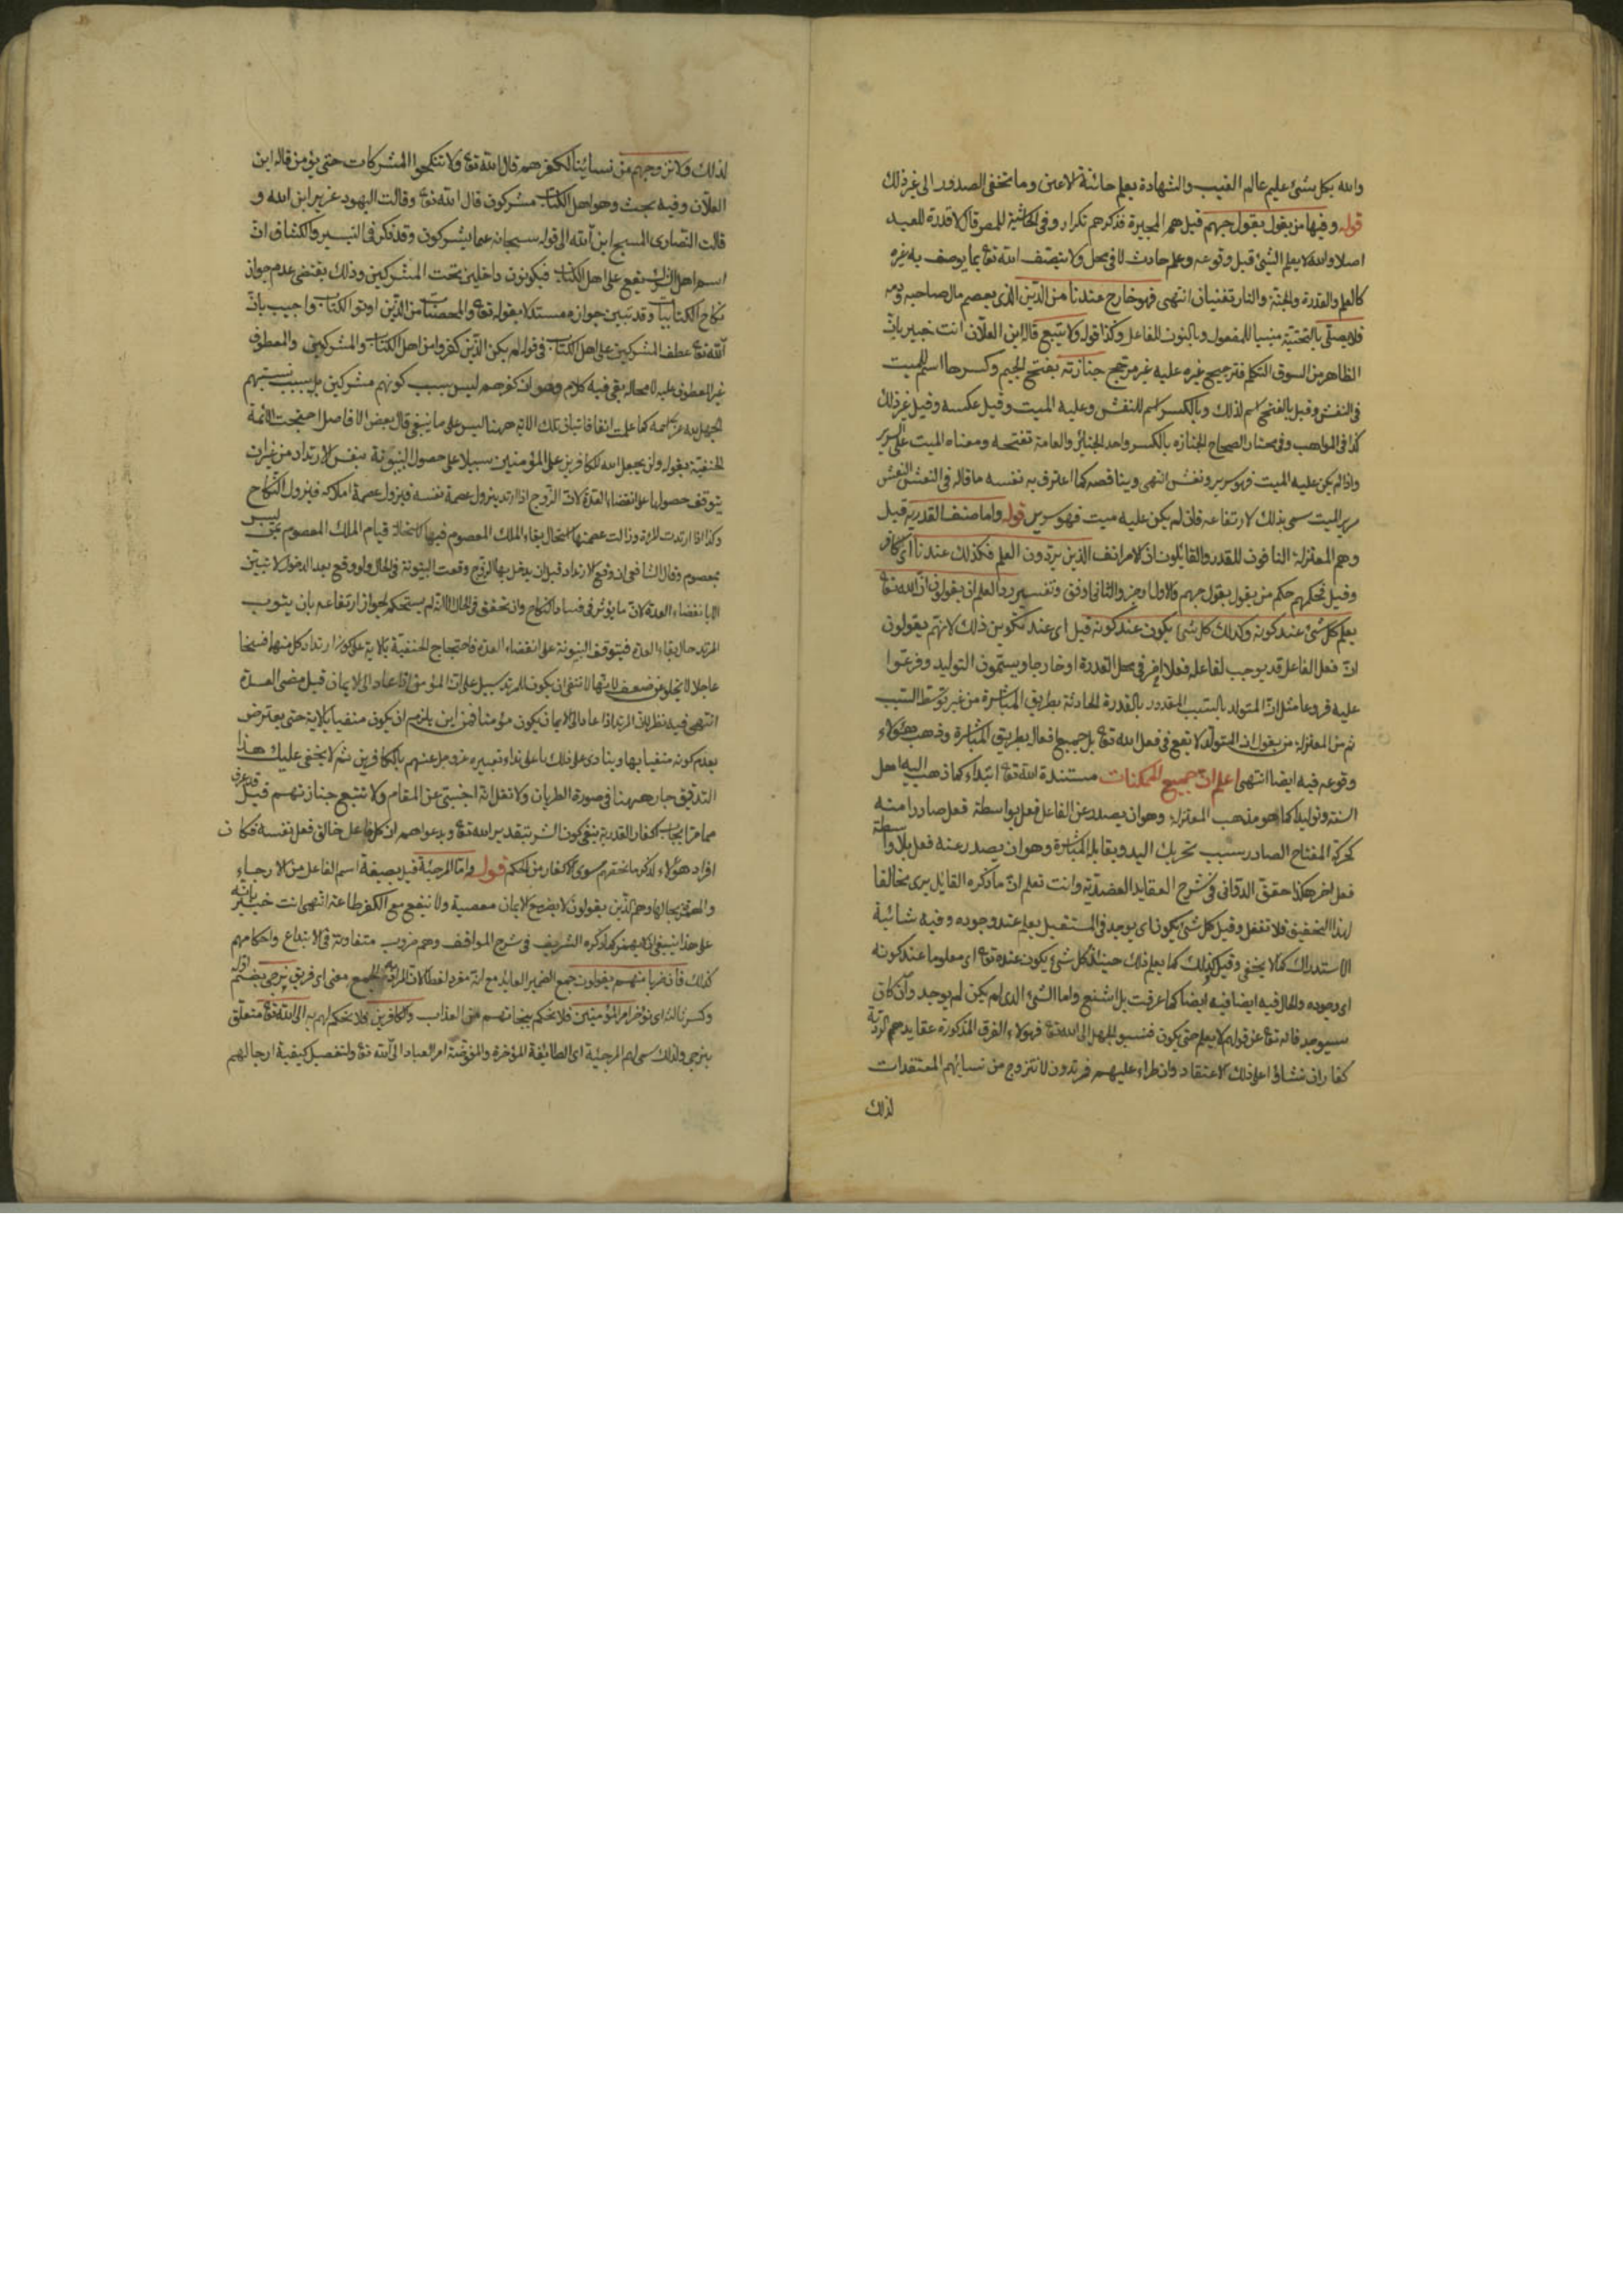 والله بكل شئ عليم عالم الغيب والشهادة يعلم خائنة الاعين وما تخفى الصدور الى غير ذلك
قوله وفيها من يقول بقول جهم قيل هم المجبرة فذكرهم تكرار وفى الحاشية للمص قال لا قدرة للعبد
اصلا والله لا يعلم الشئ قبل وقوعه وعلمه حادث لا فى محل ولا يتصف الله تعا بما يوصف به غيره
كالعلم والقدرة والجنة والنار تفنيان انتهى فهو خارج عندنا من الدين الذى يعصم مال صاحبه ودمه
فلا يصلى بالتحتية مبنيا للمفعول وبالنون للفاعل وكذا قوله ولا يتبع قال ابن العلان انت خبير بان
الظاهر من السوق التكلم فترجيح غيره عليه غير مرجح جنازته بفتح الجيم وكسرها اسم للميت
فى النعش وقيل بالفتح اسم لذلك وبالكسر اسم للنعش وعليه الميت وقيل عكسه وقيل غير ذلك
كذا فى المواهب وفى مختار الصحاح الجنازة بالكسر واحد الجنائز والعامة تفتحه ومعناه الميت على السرير
واذا لم يكن عليه الميت فهو سرير ونعش انتهى ويناقضه كما اعترف به نفسه ما قاله فى النعش النعش
سرير الميت سمى بذلك لارتفاعه فان لم يكن عليه ميت فهو سرير قوله واما صنف القدرية قيل
وهم المعتزلة النافون للقدر والقايلون ان الامر انف الذين يردون العلم فكذلك عندنا اى كافر
وقيل تحكمهم حكم من يقول بقول جهم والاول اوجز والثانى اوفق وتفسير رد العلم ان يقولون ان الله تعا
يعلم كل شئ عند كونه وكذلك كل شئ يكون عند كونه قيل اى عند تكوين ذلك لانهم يقولون
ان فعل الفاعل قد يوجب لفاعله فعلا اخر فى محل القدرة او خارجا ويسمون التوليد وفرعوا
عليه فروعا مثل ان المتولد بالسبب المقدور بالقدرة الحادثة بطريق المباشرة من غير توسط السبب
ثم من المعتزلة من يقول ان المتولد لا يقع فى فعل الله تعا بل جميع افعاله بطريق المباشرة وذهب هؤلاء
وقوعه فيه ايضا انتهى اعلم ان جميع الممكنات مستندة الله تعا ابتداء كما ذهب اليه اهل
السنة وتوليدا كما هو مذهب المعتزلة وهو ان يصدر عن الفاعل فعل بواسطة فعل صادر منه
كحركة المفتاح الصادر بسبب تحريك اليد ويقابله المباشرة وهو ان يصدر عنه فعل بلا واسطة
فعل اخر هكذا حقق الدوانى فى شرح العقايد العضدية وانت تعلم ان ما ذكره القايل يرى مخالفا
لهذا التحقيق فلا تغفل وقيل كل شئ يكون اى يوجد فى المستقبل يعلم عند وجوده وفيه شائبة
الاستدراك كما لا يخفى وقيل كذلك كما يعلم ذلك حينئذ كل شئ يكون عنده تعا اى معلوما عند كونه
اى وجوده والحال فيه ايضا فيه ايضا كما عرفت بل اشنع واما الشئ الذى لم يكن لم يوجد وان كان
سيوجد فانه تعا عن قولهم لا يعلم حتى يكون فنسبوا الجهل الى الله تعا فهؤلاء الفرق المذكورة عقايدهم الردية
كفار ان نشاؤا على ذلك الاعتقاد وان طراء عليهم فمرتدون لا نتزوج من نسائهم المعتقدات
لذلك
لذلك ولا نزوجهم من نسائنا لكفرهم قال الله تعا ولا تنكحوا المشركات حتى يؤمن قال ابن
العلان وفيه بحث وهو اهل الكتاب مشركون قال الله تعا وقالت اليهود عزير ابن الله و
قالت النصارى المسيح ابن الله الى قوله سبحانه عما يشركون وقد ذكر فى التيسير والكشاف ان
اسم اهل الشرك يقع على اهل الكتاب فيكونون داخلين تحت المشركين وذلك يقتضى عدم جواز
نكاح الكتابيات وقد تبين جوازه مستدلا بقوله تعا والمحصنات من الذين اوتوا الكتاب واجيب بان
الله تعا عطف المشركين على اهل الكتاب فى قوله لم يكن الذين كفروا من اهل الكتاب والمشركين والمعطوف
غير المعطوف عليه لا محالة بقى فيه كلام وهو ان كفرهم ليس بسبب كونهم مشركين بل بسبب نسبتهم
الجهل له عز اسمه كما علمت انفا فاتيانى تلك الاية ههنا ليس على ما ينبغى قال بعض الافاضل احتجت الائمة
الحنفية بقوله ولن يجعل الله للكافرين على المؤمنين سبيلا على حصول البينونة بنفس الارتداد من غير ان
يتوقف حصولها على انقضاء العدة لان الزوج اذا ارتد يزول عصمة نفسه فيزول عصمة املاكه فيزول النكاح
وكذا اذا ارتدت المراة وزالت عصمتها استحال بقاء الملك المعصوم فيها لاستحالة قيام الملك المعصوم فيمن ليس
بمعصوم وقال الشافعى ان وقع الارتداد قبل ان يدخل بها الزوج وقعت البينونة فى الحال ولو وقع بعد الدخول لا تبين
الا بانقضاء العدة لان ما يؤثر فى فساد النكاح وان تحقق فى الحال الا انه لم يستحكم لجواز ارتفاعه بان يتوب
المرتد حال بقاء العدة فيتوقف البينونة على انقضاء العدة فاحتجاج الحنفية بالاية على كون ارتداد كل منهما فسخا
عاجلا لا يخلو من ضعف لانها لا تنفى ان يكون للمرتد سبيل على المؤمن اذا عاد الى الايمان قبل مضى العدة
انتهى فيه نظر لان المرتد اذا عاد الى الايمان يكون مؤمنا فمن اين يلزم ان يكون منفيا بالاية حتى يعترض
بعدم كونه منفيا بها وينادى على ذلك باعلى نداء تعبيره عز وجل عنهم بالكافرين ثم لا يخفى عليك هذا
التدقيق جار ههنا فى صورة الطريان ولا تغفل انه اجنبى عن المقام ولا نتبع جنازتهم قيل قد عرف
مما مر ايجاب اكفار القدرية بنفى كون الشر بتقدير الله تعا وبدعواهم ان كل فاعل خالق فعل نفسه فكان
افراد هؤلاء لذكر ما تحقرهم سوى الاكفار من الحكم قوله واما المرجئة قيل بصيغة اسم الفاعل من الارجاء
والهمزة بحالها وهم الذين يقولون لا يضر مع الايمان معصية ولا ينفع مع الكفر طاعة انتهى انت خبير بانه
على هذا ينبغى اكفارهم كما ذكره الشريف فى شرح المواقف وهم ضروب متفاوتة فى الابتداع واحكامهم
كذلك فان ضربا منهم يقولون جمع الضمير العايد مع انه مفرد لفظا لان المراد به الجمع معنى اى فريق نرجى بضم اوله
وكسر ثالثه اى نؤخر امر المؤمنين فلا نحكم بنجاتهم من العذاب والكافرين فلا نحكم لهم به الى الله تعا متعلق
بنرجى ولذلك سمى لهم المرجئة اى الطائفة المؤخرة والمفوضة امر العباد الى الله تعا ولتفصيل كيفية ارجائهم